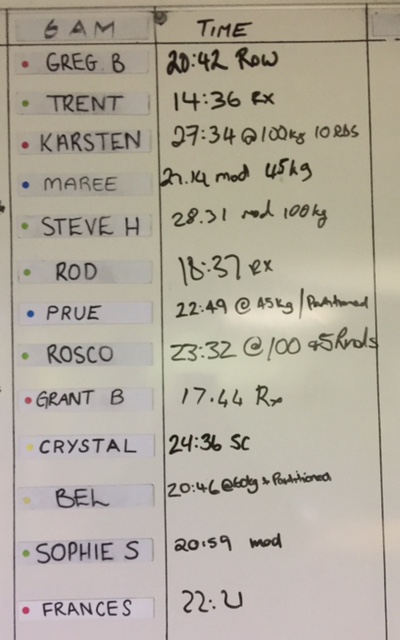 6 AM TIME
GREG. B 20:42 Row
TRENT 14:36 Rx
KARSTEN 27:34 @100kg 10 RDS
MAREE mod 45kg
STEVE H 28.31 mod 100kg
ROD 18:37 RX
PRUE 22:49 @ 45kg / Partitioned
ROSCO 23:32 @100 Rnds
GRANT B 17.44 Rx
CRYSTAL 24:36 SC
BEL 20:46 @60kg & Partitioned
SOPHIE S 20:59 mod
FRANCES 22: